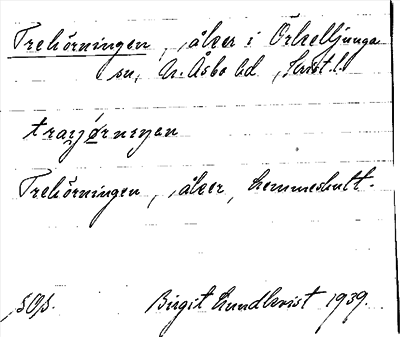 Trehörningen, åker i Örkelljunga
sn, N. Åsbo hd, Krist. l.
trayørnıŋen
Trehörningen, åker, Hemmeshult.
SOS. Birgit Lundkvist 1939.